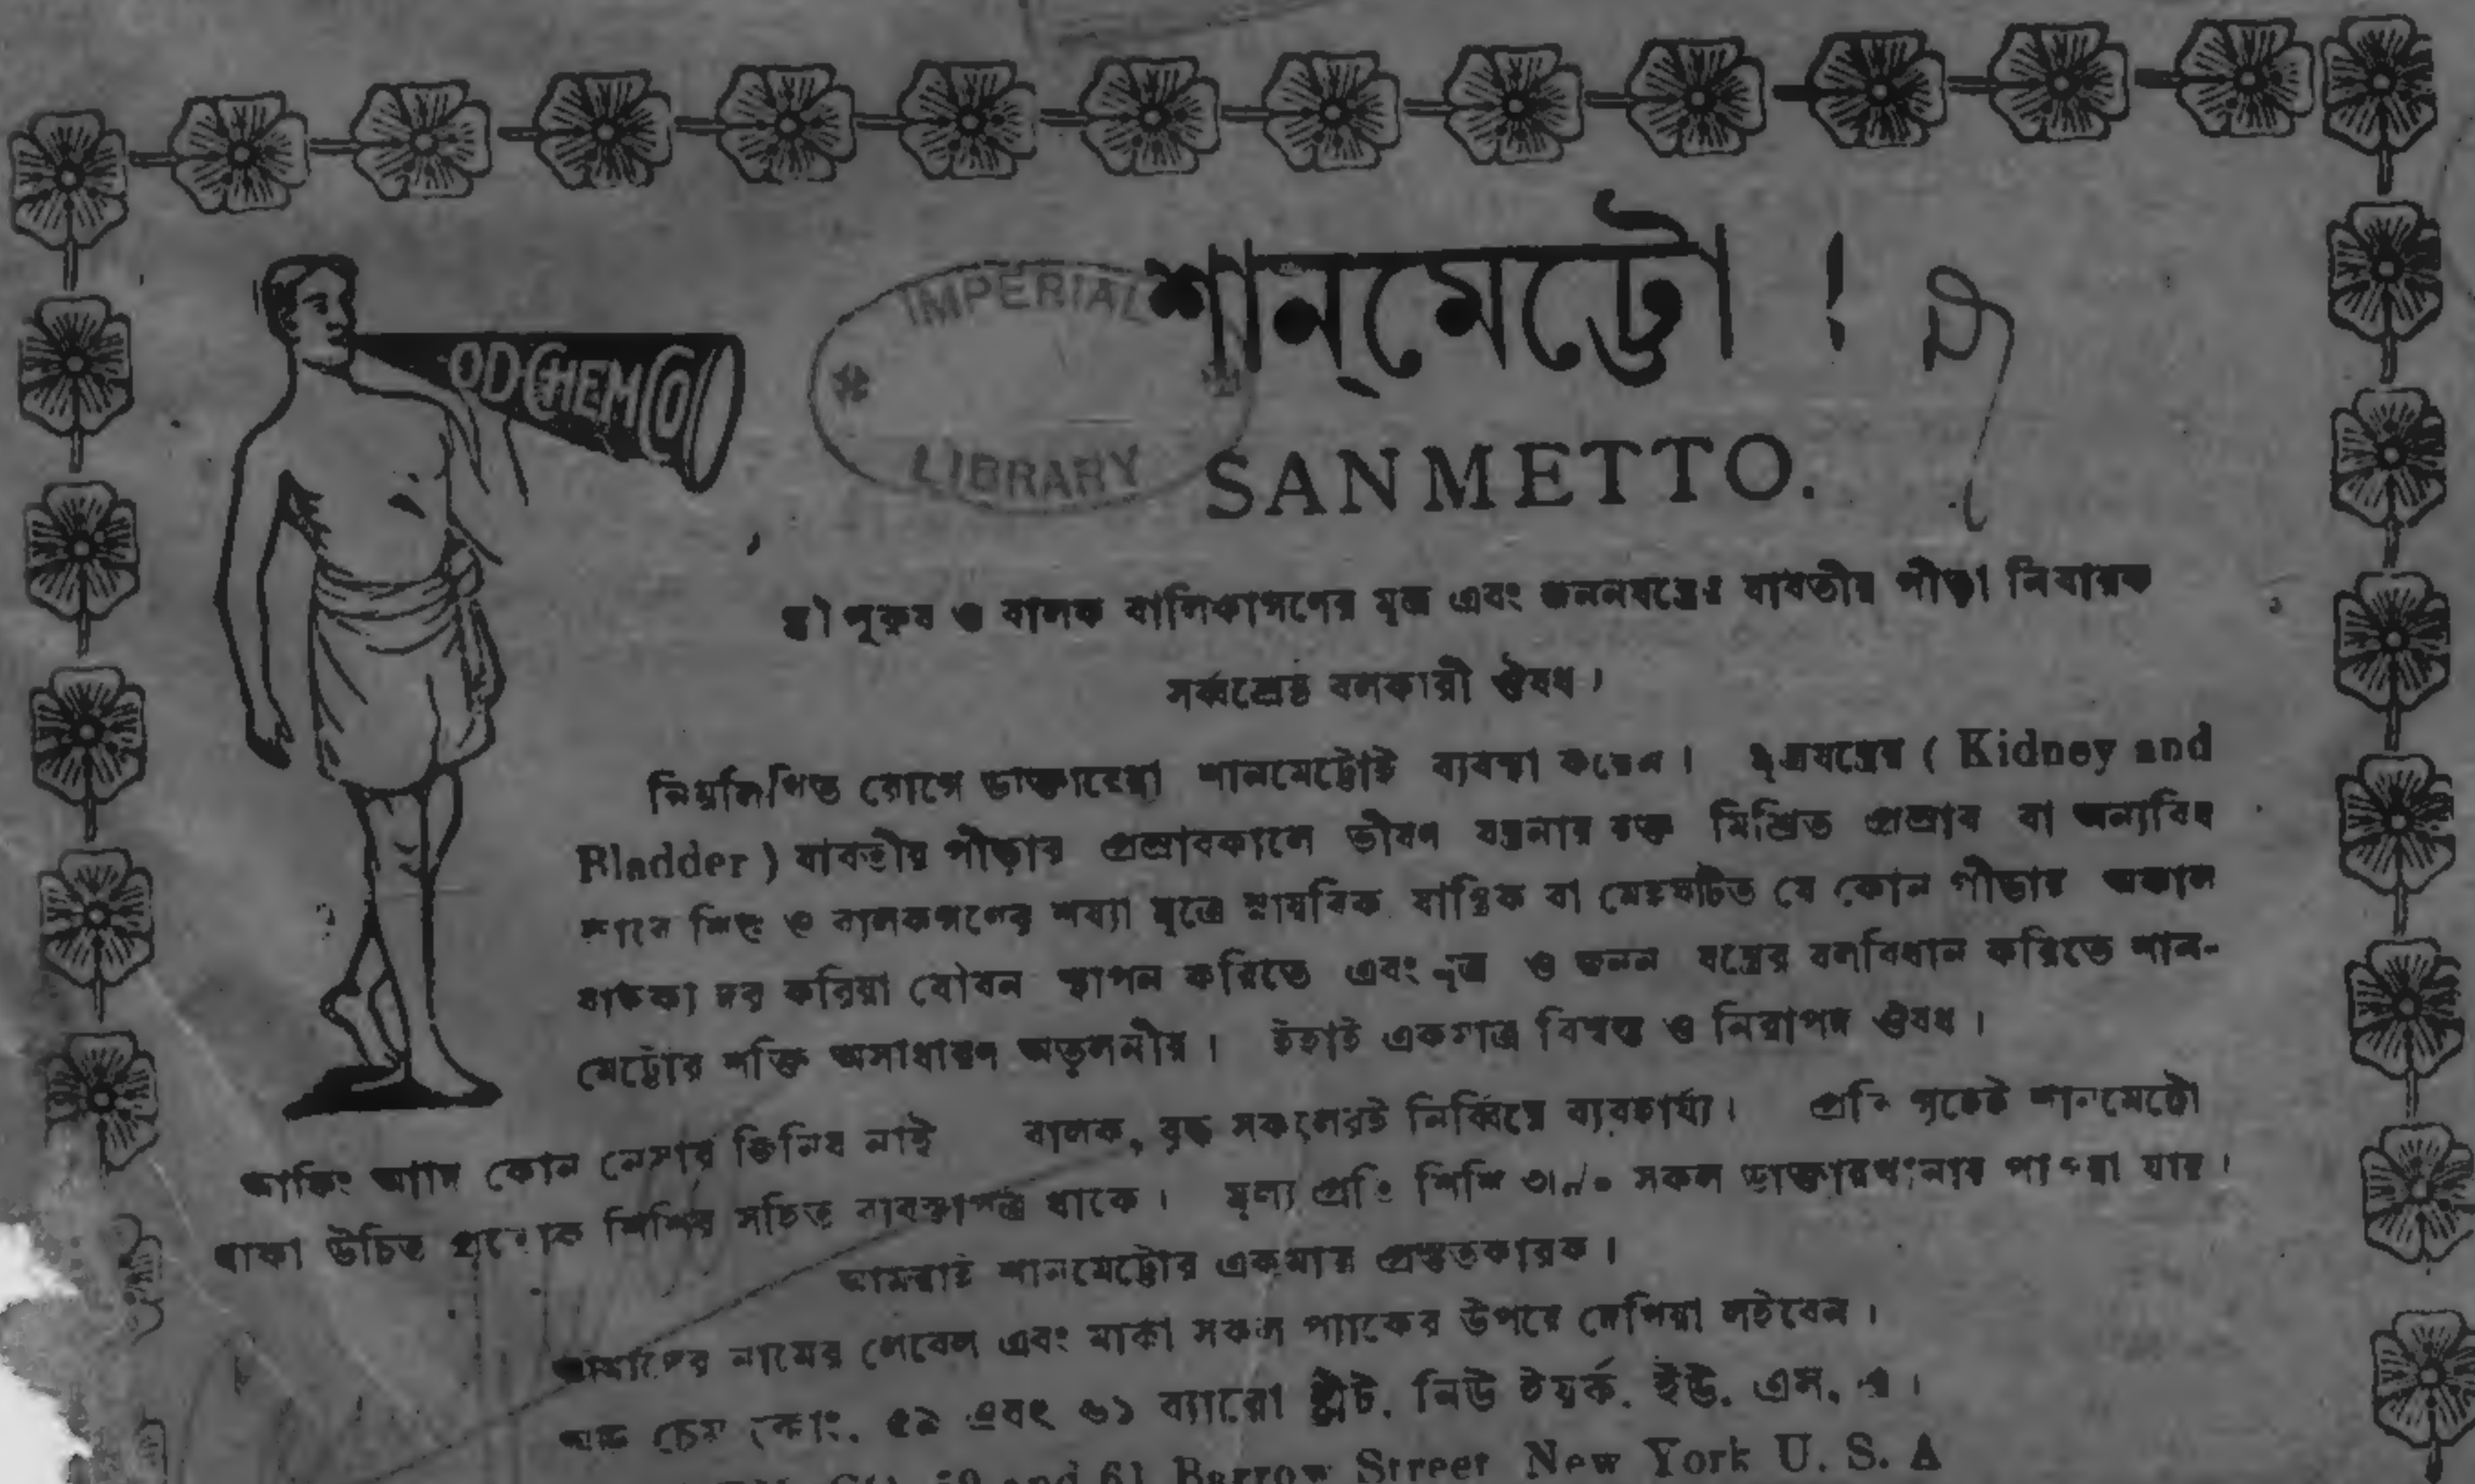 শান্‌মেট্টো !
OD CHEM CO
IMPERIAL
LIBRARY
SANMETTO.
স্ত্রী পুরুষ ও বালক বালিকাগণের মূত্র এবং জননযন্ত্রের যাবতীয় পীড়া নিবারক
সর্ব্বশ্রেষ্ঠ বলকারী ঔষধ।
নিম্নলিখিত রোগে ডাক্তারেরা শানমেট্টোই ব্যবস্থা করেন। মূত্রযন্ত্রের ( Kidney and
Bladder ) যাবতীয় পীড়ায় প্রস্রাবকালে ভীষণ যন্ত্রনায় রক্ত মিশ্রিত প্রস্রাব বা অন্যবিধ
শিশু ও বালকগণের শয্যা মূত্রে স্নায়বিক যান্ত্রিক বা মেহঘটিত যে কোন পীড়ায় অকাল
বার্দ্ধক্য দূর করিয়া যৌবন স্থাপন করিতে এবং মূত্র ও জনন যন্ত্রের বলবিধান করিতে শান-
মেট্টোর শক্তি অসাধারণ অতুলনীয়। ইহাই একমাত্র বিশ্বস্ত ও নিরাপদ ঔষধ।
আফিং আদি কোন নেসার জিনিষ নাই বালক, বৃদ্ধ সকলেরই নির্ব্বিঘ্নে ব্যবহার্য্য। প্রতি গৃহেই শানমেট্টো
থাকা উচিত প্রত্যেক শিশির সহিত ব্যবস্থাপত্র থাকে। মূল্য প্রতি শিশি ৩৷৵০ সকল ডাক্তারখানায় পাওয়া যায়।
আমরাই শানমেট্টোর একমাত্র প্রস্তুতকারক।
আমাদের নামের লেবেল এবং মার্কা সকল প্যাকের উপরে দেখিয়া লইবেন।
অড চেম কোং. ৫৯ এবং ৬১ ব্যারো ষ্ট্রীট. নিউ ইয়র্ক. ইউ. এস. এ।
59 and 61 Barrow Street New York U. S. A